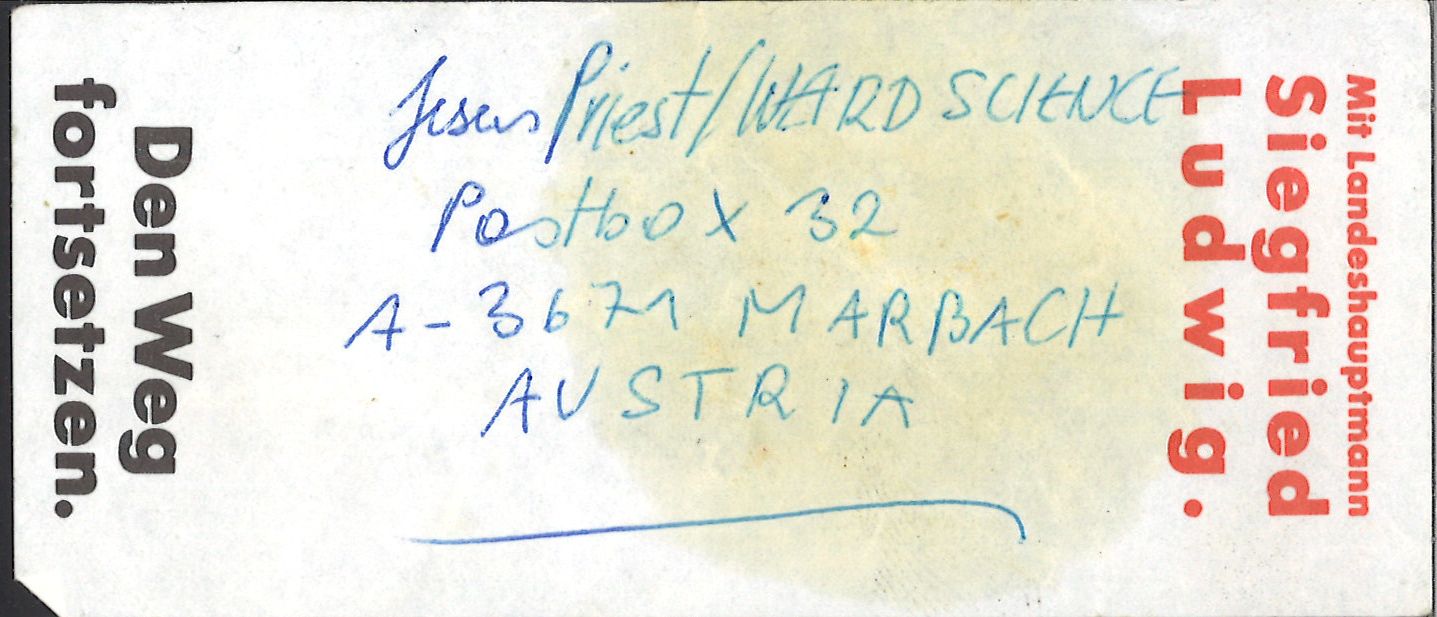 Den Weg
fortsetzen.
Jesus Priest/WARD SCIENCE
Postbox 32
A-3671 MARBACH
AUSTRIA
Mit Landeshauptmann
Siegfried
Ludwig.